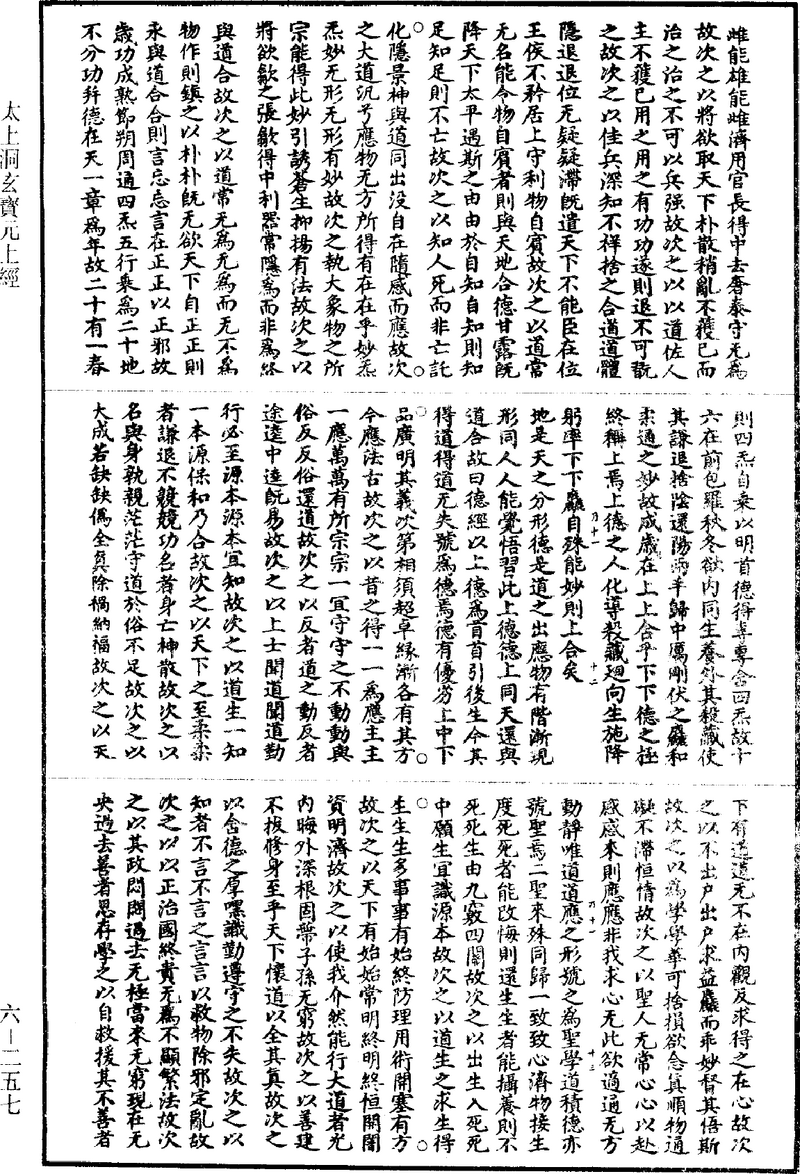 雌能雄能雌濟用官長得中去奢泰守无爲
故次之以將欲取天下朴散稍亂不獲已而
治之治之不可以兵强故次之以以道佐人
主不獲已用之用之有功功遂則退不可翫
之故次之以佳兵深知不祥捨之合道道體
隱退退位无疑疑滯旣遣天下不能臣在位
王侯不矜居上守利物自賓故次之以道常
无名能令物自賓者則與天地合德甘露旣
降天下太平遇斯之由由於自知自知則知
足知足則不亡故次之以知人死而非亡託
化隱景神與道同出没自在隨感而應故次
之大道汎兮應物无方所得有在在乎妙炁
炁妙无形无形有妙故次之執大象物之所
宗能得此妙引誘蒼生抑揚有法故次之以
將欲歙之張歙得中利器常隱爲而非爲終
與道合故次之以道常无爲无爲而无不爲
物作則鎮之以朴朴旣无欲天下自正正則
永與道合合則言忘忘言在正正以正邪故
歲功成熟節朔周通四炁五行乘爲二十地
不分功幷德在天一章爲年故二十有一春
則四炁自乘以明首德得專專含四炁故十
六在前包羅秋冬欲内同生養外其殺藏使
其謙退捨陰還陽兩半歸中厲剛伏之麤和
柔通之妙故成歲在上上合乎下下德之極
終稱上焉上德之人化導殺藏廻向生施降
躬率下下麤自殊能妙則上合矣
地是天之分形德是道之出應物有階漸現
形同人人能覺悟習此上德德上同天還與
道合故曰德經以上德爲首首引後生令其
得道得道无失號爲德焉德有優劣上中下
品廣明其義次第相須超卓緣漸各有其方
今應法古故次之以昔之得一一爲應主主
一應萬萬有所宗宗一宜守守之不動動與
俗反反俗還道故次之以反者道之動反者
途逵中逵旣易故次之以上士聞道聞道勤
行必至源本源本宜知故次之以道生一知
一本源保和乃合故次之以天下之至柔柔
者謙退不競競功名者身亡神散故次之以
名與身孰親茫茫守道於俗不足故次之以
大成若缺缺僞全眞除禍納福故次之以天
下有道道无不在内觀反求得之在心故次
之以不出戶出戶求益麤而乖妙督其悟斯
故次之以爲學學華可捨損欲念眞順物通
礙不滯恒情故次之以聖人无常心心以赴
感感來則應應非我求心无此欲適通无方
動靜唯道道應之形號之爲聖學道積德亦
號聖焉二聖來殊同歸一致致心濟物接生
度死死者能改悔則還生生者能攝養則不
死死生由九竅四關故次之以出生入死死
中願生宜識源本故次之以道生之求生得
生生生多事事有始終防理用術開塞有方
故次之以天下有始始常明終明終恒開闇
資明濟故次之以使我介然能行大道者光
内晦外深根固蔕子孫无窮故次之以善建
不拔修身至乎天下懷道以全其眞故次之
以含德之厚嘿識勤遵守之不失故次之以
知者不言不言之言言以救物除邪定亂故
次之以以正治國終貴无爲不顯繁法故次
之以其政悶悶過去无極當來无窮現在无
央過去善者思存學之以自救援其不善者
太上洞玄寶元上經
六—二五七